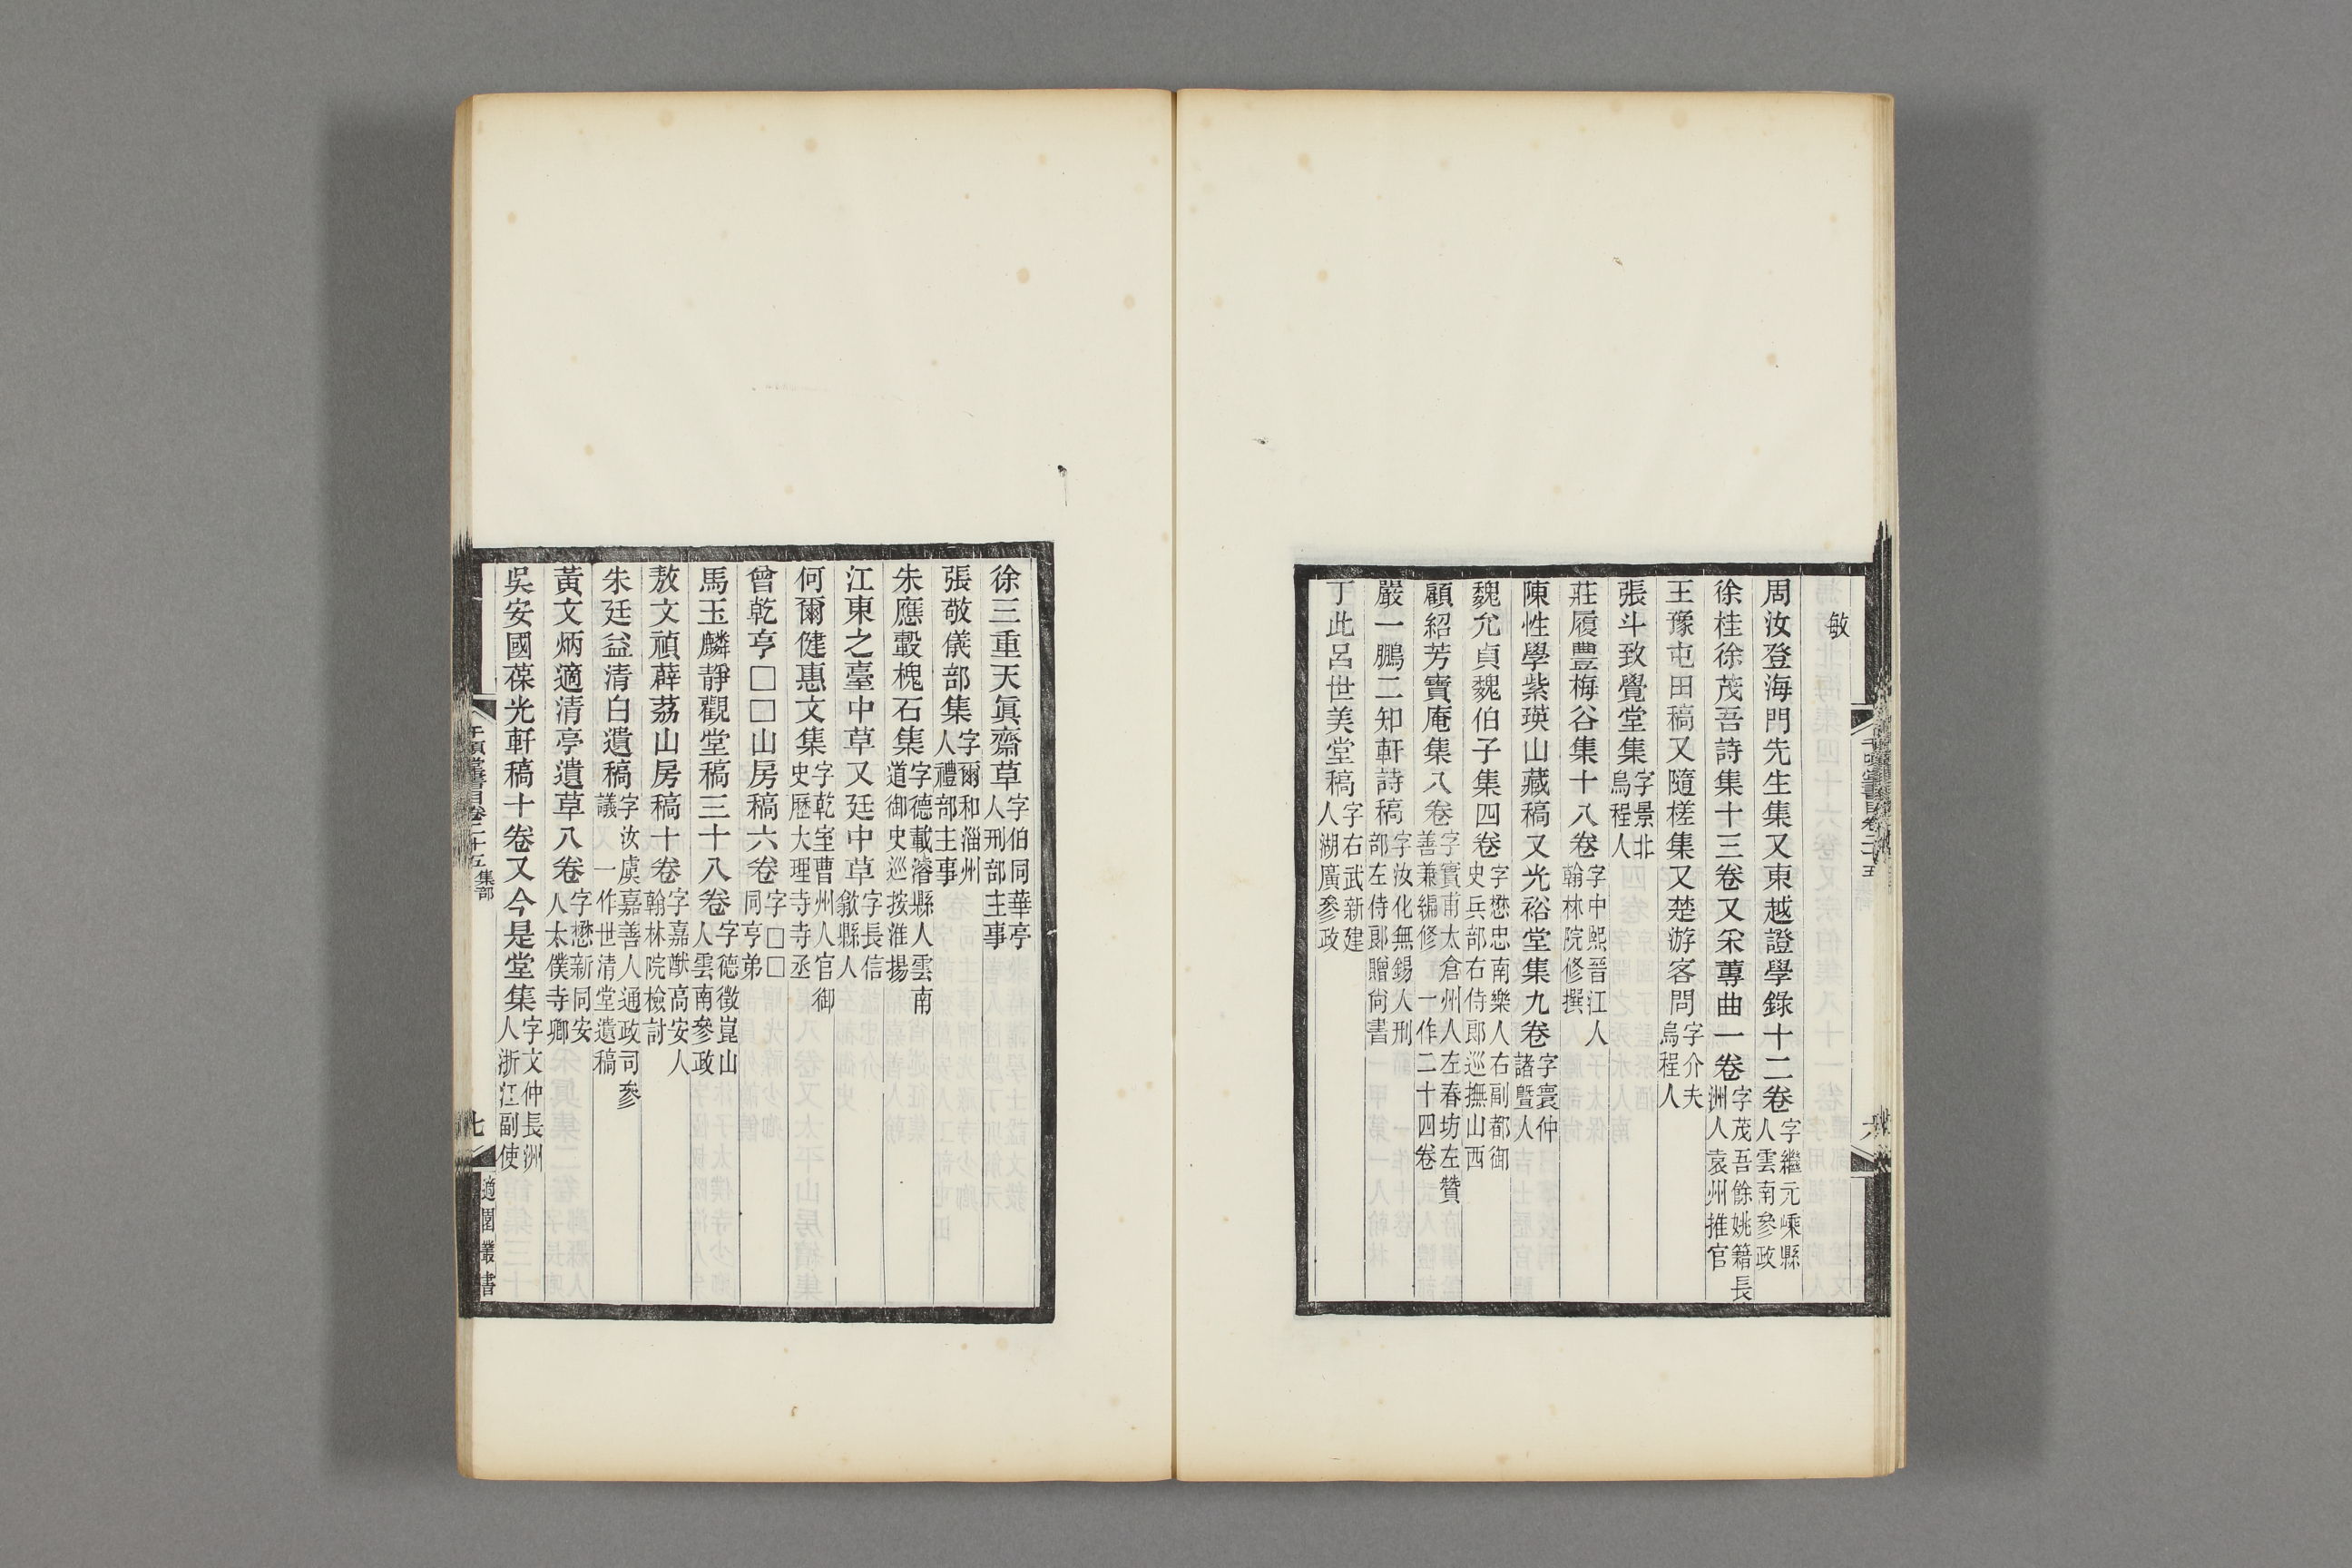 敏
周汝登海門先生集又東越證學錄十二卷字繼元嵊縣人雲南參政
徐桂徐茂吾詩集十三卷又采蓴曲一卷字茂吾餘姚籍長洲人袁州推官
王豫屯田稿又隨槎集又楚游客問字介夫烏程人
張斗致覺堂集字景北烏程人
莊履豐梅谷集十八卷字中熙晉江人翰林院修撰
陳性學紫瑛山藏稿又光裕堂集九卷字寰仲諸曁人
魏允貞魏伯子集四卷字懋忠南樂人右副都御史兵部右侍郎巡撫山西
顧紹芳寶庵集八卷字寶甫太倉州人左春坊左贊善兼編修一作二十四卷
嚴一鵬二知軒詩稿字汝化無錫人刑部左侍郞贈尙書
丁此呂世美堂稿字右武新建人湖廣參政
徐三重天眞齋草字伯同華亭人刑部主事
張敬儀部集字爾和淄州人禮部主事
朱應轂槐石集字德載濬縣人雲南道御史巡按淮揚
江東之臺中草又廷中草字長信歙縣人
何爾健惠文集字乾室曹州人官御史歷大理寺寺丞
曾乾亨□□山房稿六卷字□□同亨弟
馬玉麟靜觀堂稿三十八卷字德徵崑山人雲南參政
敖文禎薜荔山房稿十卷字嘉猷高安人翰林院檢討
朱廷益清白遺稿字汝虞嘉善人通政司參議　一作世清堂遺稿
黃文炳適清亭遺草八卷字懋新同安人太僕寺卿
吳安國葆光軒稿十卷又今是堂集字文仲長洲人浙江副使
千頃堂書目卷二十五　集部
七
適園叢書